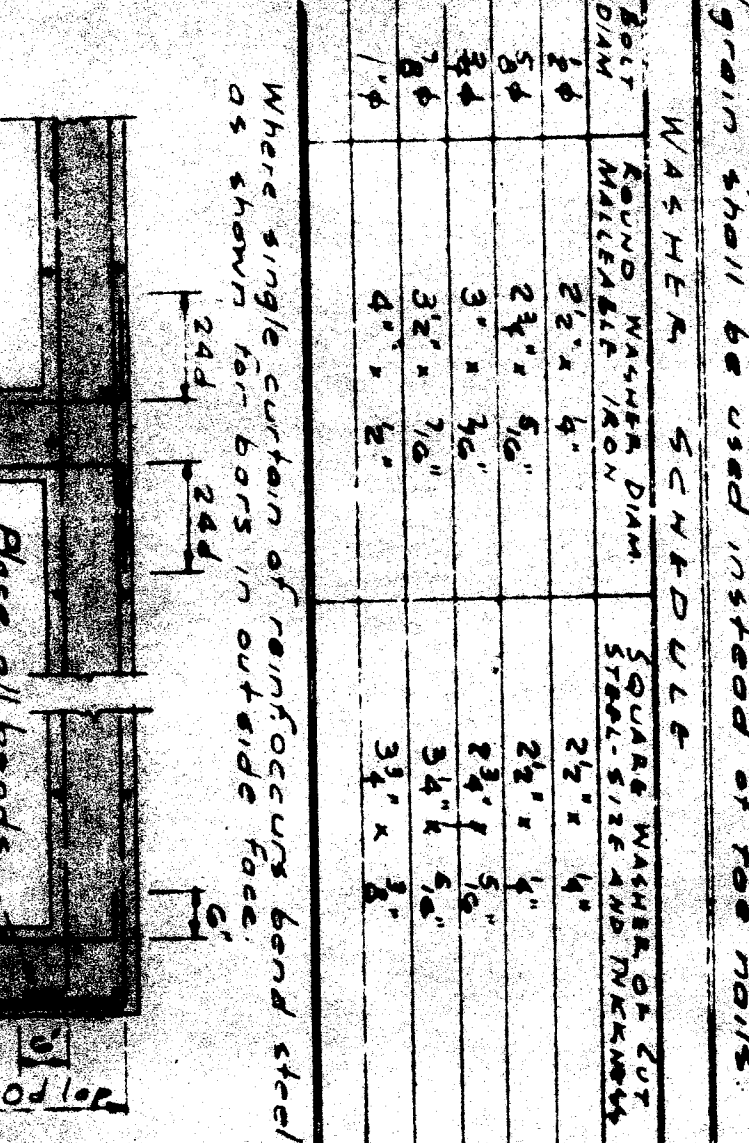 grain shall be used instead of toe nails.
WASHER SCHEDULE
BOLT DIAM
ROUND WASHER DIAM. MALLEABLE IRON
SQUARE WASHER OF CUT STEEL-SIZE AND THICKNESS
1/2 φ 2 1/2" x 1/4" 2 1/2" x 1/4"
5/8 φ 2 3/4" x 5/16" 2 1/2" x 1/4"
3/4 φ 3" x 3/16" 2 3/4" x 5/16"
7/8 φ 3 1/2" x 7/16" 3 1/4" x 5/16"
1" φ 4" x 1/2" 3 3/4" x 3/8"
Where single curtain of reinf. occurs bend steel
as shown for bars in outside face.
24d 24d 6"
Place all bends
lap